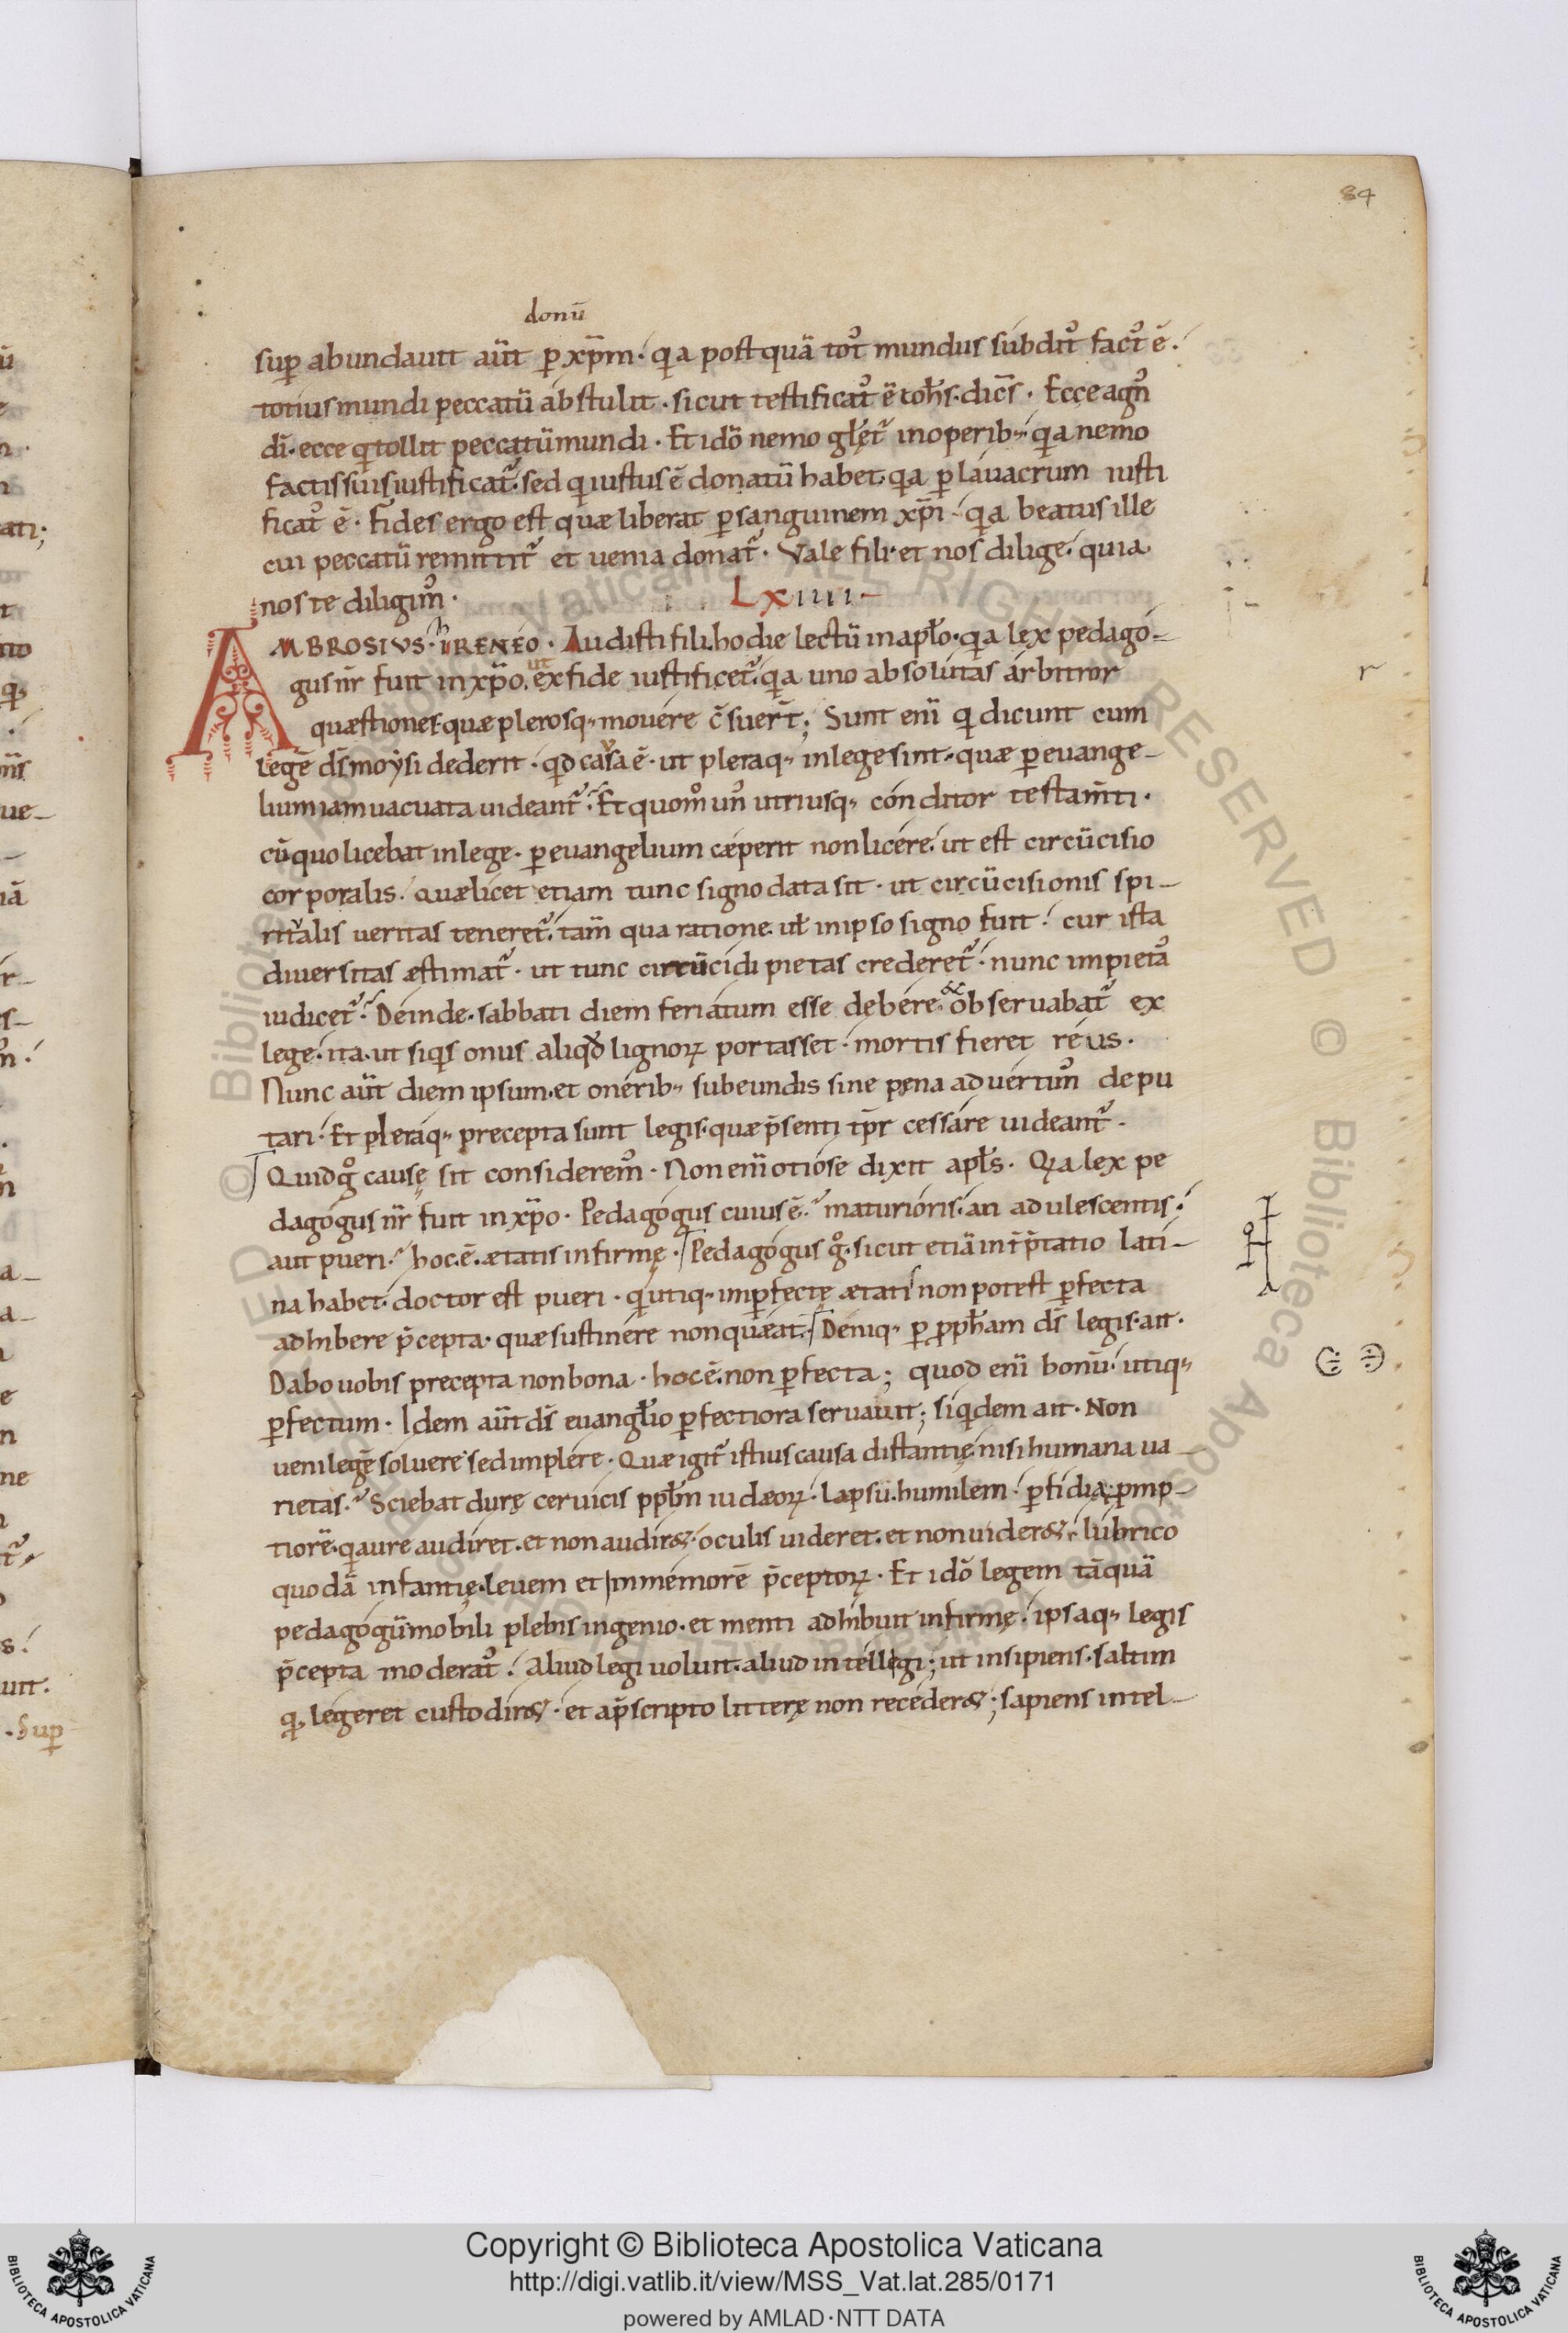 84
donū
sup abundauit aūt p xp̄m · qia postquā tot᾽ mundus subdit᾽ fact᾽ ē ·
totius mundi peccatū abstulit · sicut testificat᾽ ē ioh̄s · dic̄s · Ecce agn᾽
dī · ecce qi tollit peccatū mundi · Et idō nemo glęt᾽ in operib; qia nemo
factis suis iustificat᾽ · sed qi iustus ē donatū habet · qia p lauacrum iusti
ficat᾽ ē · Fides ergo est quæ liberat p sanguinem xp̄i · qia beatus ille
cui peccatū remittit᾽ et uenia donat᾽ · Vale fili · et nos dilige · quia
nos te diligim᾽ ·
LXIIII
AMBROSIVS · hIRENEO · Audisti fili hodie lectū in apło · qia lex pedago-
gus nr̄ fuit in xp̄o · ut ex fide iustificet᾽ · qia uno absolutas arbitror
quæstiones · quæ plerosq; mouere c̄suer̄t ; Sunt enī qi dicunt cum
legē ds̄ moysi dederit · qd causa ē · ut pleraq; in lege sint · quæ p euange-
lium iam uacuata uideant᾽ · Et quom° un᾽ utriusq; conditor testam̄ti ·
cū quo licebat in lege · p euangelium cæperit non licere · ut est circūcisio
corporalis · quæ licet etiam tunc signo data sit · ut circūcisionis spi-
rit᾽alis ueritas teneret᾽ · tam̄ qua ratione uł in ipso signo fuit · cur ista
diuersitas æstimat᾽ · ut tunc circūcidi pietas crederet᾽ · nunc impieta᾽
iudicet᾽ · Deinde · sabbati diem feriatum esse debere & obseruabat᾽ ex
lege · ita · ut siqis onus aliqd lignoꝝ portasset · mortis fieret reus ·
Nunc aūt diem ipsum · et onerib; subeundis sine pena aduertim᾽ depu
tari · Et pleraq; precepta sunt legis · quæ p̄senti tp̄r cessare uideant᾽ ·
Quid g° causę sit considerem᾽ · Non enī otiose dixit apłs · Qia lex pe
dagogus nr̄ fuit in xp̄o · Pedagogus cuius ē · maturioris · an adulescentis ·
aut pueri · hoc · ē · ætatis infirmę · Pedagogus g° · sicut etiā int̄p̄tatio lati-
na habet · doctor est pueri · qi utiq; imp fectę ætati non potest p fecta
adhibere p̄cepta · quæ sustinere non queat · Deniq; p pph̄am ds̄ legis · ait ·
Dabo uobis precepta non bona · hoc ē · non p fecta ; quod enī bonū · utiq;
p fectum · Idem aūt ds̄ euangłio p fectiora seruauit ; siqidem ait · Non
ueni legē soluere sed implere · Quæ igit᾽ istius causa distantię · nisi humana ua-
rietas · Sciebat durę ceruicis ppłm iudæoꝝ · lapsū · humilem · p fidia · pmp-
tiorē · qi aure audiret · et non audir& · oculis uideret · et non uider& · lubrico
quodā infantię · leuem et inmemorē p̄ceptoꝝ · Et idō legem tāquā
pedagogū mobili plebis ingenio · et menti adhibuit infirmę · ipsaq; legis
p̄cepta moderat᾽ · Aliud legi uoluit · aliud intellegi ; ut insipiens · saltim
q̨ legeret custodir& · et a p̄scripto litterę non receder& ; sapiens intel-
r
Copyright © Biblioteca Apostolica Vaticana
http://digi.vatlib.it/view/MSS_Vat.lat.285/0171
powered by AMLAD·NTT DATA
BIBLIOTECA APOSTOLICA VATICANA
BIBLIOTECA APOSTOLICA VATICANA